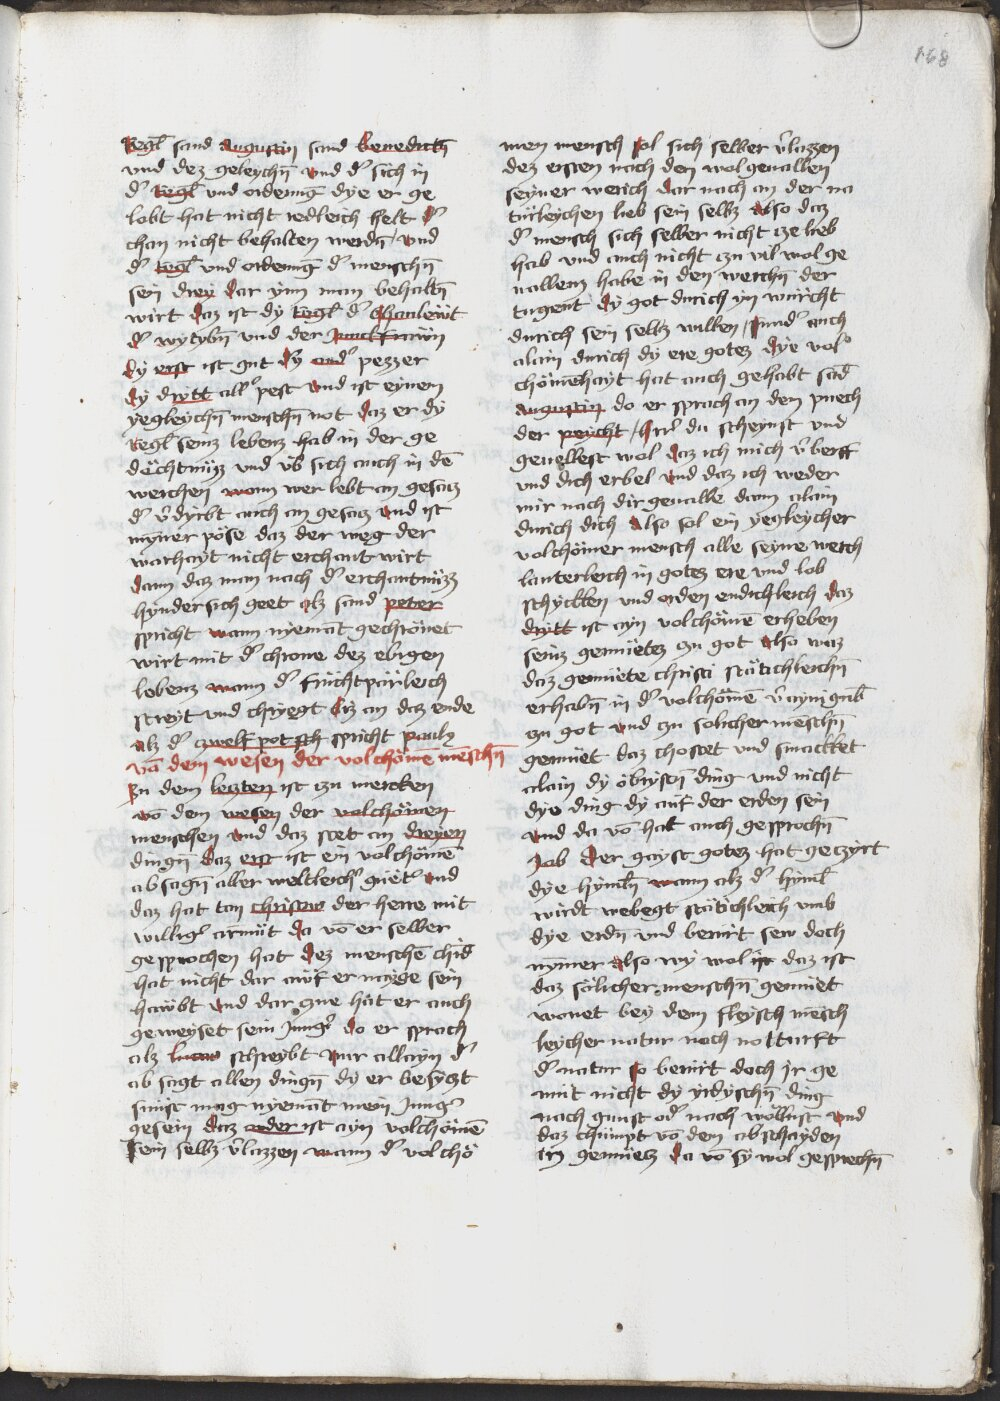 168
Regel sand Augustin sand benedictn̄
vnd dez geleychn̄ vnd d' sich in
d' Regel vnd ordenūg dye er ge
lobt hat nicht redleich helt d'
chan nicht behalten werdn̄ vnd
d' regel vnd ordenūg d' menschn̄
sein drey dar ynn man behaltn̄
wirt daz ist dy Regel d' chanlewt
d' wytybn̄ vnd der Junckfrawn
dy erst ist gut dy and' pezzer
dy dritt all' pest vnd ist eynem
yegleychn̄ menschn̄ not daz er dy
Regel seinz lebenz hab in der ge
dächtnüzz vnd vb sich auch in dē
werchen wann wer lebt an gesacz
d' v'dyrbt auch an gesacz vnd ist
mynner pöse daz der weg der
warhayt nicht erchant wirt
dann daz man nach d' erchantnüzz
hynder sich geet alz sand peter
spricht wann nyemāt gechrönet
wirt mit d' chrone dez ebigen
lebenz wann d' fruchtpärleich
streyt vnd chryegt biz an daz ende
alz d' czwelfpot sch spricht pauls
vā dem wesen der volchōmē mēschn̄
Zu dem leczten ist czu mercken
vō dem wesen der volchömen
menschen vnd daz stet an dreyen
dingn̄ daz erst ist ein volchömē
absagn̄ aller weltleich' güet' vnd
daz hat tan christus der herre mit
willig' armüt da vō er selber
gesprochen hat dez menschē chīd
hat nicht dar auf er nayge sein
hawbt vnd dar zue hat er auch
geweyset sein Jung' do er sprach
alz lucas schreybt nur allayn d'
ab sagt allen dingn̄ dy er besyczt
sünst mag nyemāt mein Jung'
gesein daz ander ist ayn volchömē
sein selbz v'lazzen wann d' volchö
men mensch sol sich selber v'lazzen
dez ersten nach den wolgeuallen
seyner werich dar nach an der na
türleychen lieb sein selbz also daz
d' mensch sich selber nicht cze lieb
hab vnd auch nicht czu vil wol ge
uallenz habe in den werchn̄ der
tugent dy got durich yn würcht
durich sein selbz willen / sund' auch
alain durich dy ere gotez dye vol
chömēhayt hat auch gehabt sād
Augustin do er sprach an dem puech
der peycht / Herr du scheynst vnd
geuellest wol daz ich mich v'berff
vnd dich erbel vnd daz ich weder
mir nach dir geualle dann alain
durich dich also sol ein yegleycher
volchömer mensch alle seyne werch
lauterleich in gotez ere vnd lob
schyckken vnd orden endichleich daz
dritt ist ayn volchömē erheben
seinz gemüetez czu got also waz
daz gemüete christi stätichleichn̄
erhabn̄ in d' volchömē v'aynigūg
czu got vnd czu solicher mēschn̄
gemüet daz chostet vnd smackket
alain dy öbrystn̄ ding vnd nicht
dye ding dy auf der erden sein
vnd da vō hat auch gesprochn̄
Job der gayst gotez hat geczyrt
dye hymeln̄ wann alz d' hymel
wirdt webegt stätichleich vmb
dye erdn̄ vnd berürt sew doch
nymmer also wy wol ist daz ist
daz sälicher menschn̄ gemüet
wonet bey dem fleysch mēsch
leycher natur nach notturft
d' natur so berürt doch jr ge
müt nicht dy yrdyschn̄ ding
nach gunst od' nach wollust vnd
daz chümpt vō dem abschayden
irz gemüetz da vō sy wol gesprechn̄